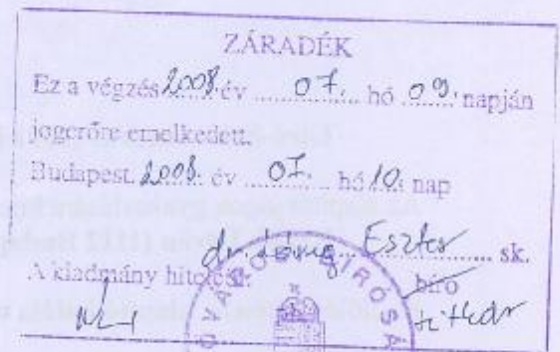 ZÁRADÉK
Ez a végzés 2008. év ........ 07. hó 09. napján
jogerőre emelkedett.
Budapest, 2008. év ........ 07. hó 10. nap
dr. Eszter ........ sk.
A kiadmány hiteléül: bíró
titkár
VÁROSI BÍRÓSÁG